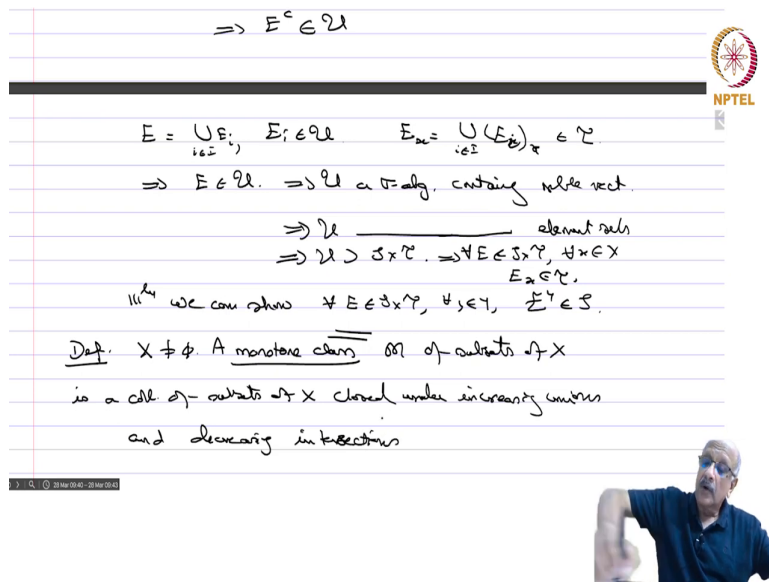 ⇒ E^c ∈ 𝒰
NPTEL
E = ⋃_{i∈I} E_i, E_i ∈ 𝒰 E_x = ⋃_{i∈I} (E_i)_x ∈ 𝒯.
⇒ E ∈ 𝒰. ⇒ 𝒰 a σ-alg. containing mble rect.
⇒ 𝒰 ———— element sets
⇒ 𝒰 ⊃ 𝒮×𝒯. ⇒ ∀ E ∈ 𝒮×𝒯, ∀ x ∈ X
E_x ∈ 𝒯.
|||ly we can show ∀ E ∈ 𝒮×𝒯, ∀ y ∈ Y, E^y ∈ 𝒮.
Def. X ≠ φ. A monotone class 𝓜 of subsets of X
is a coll. of subsets of X closed under increasing unions
and decreasing intersections
28 Mar 09:40 - 28 Mar 09:43